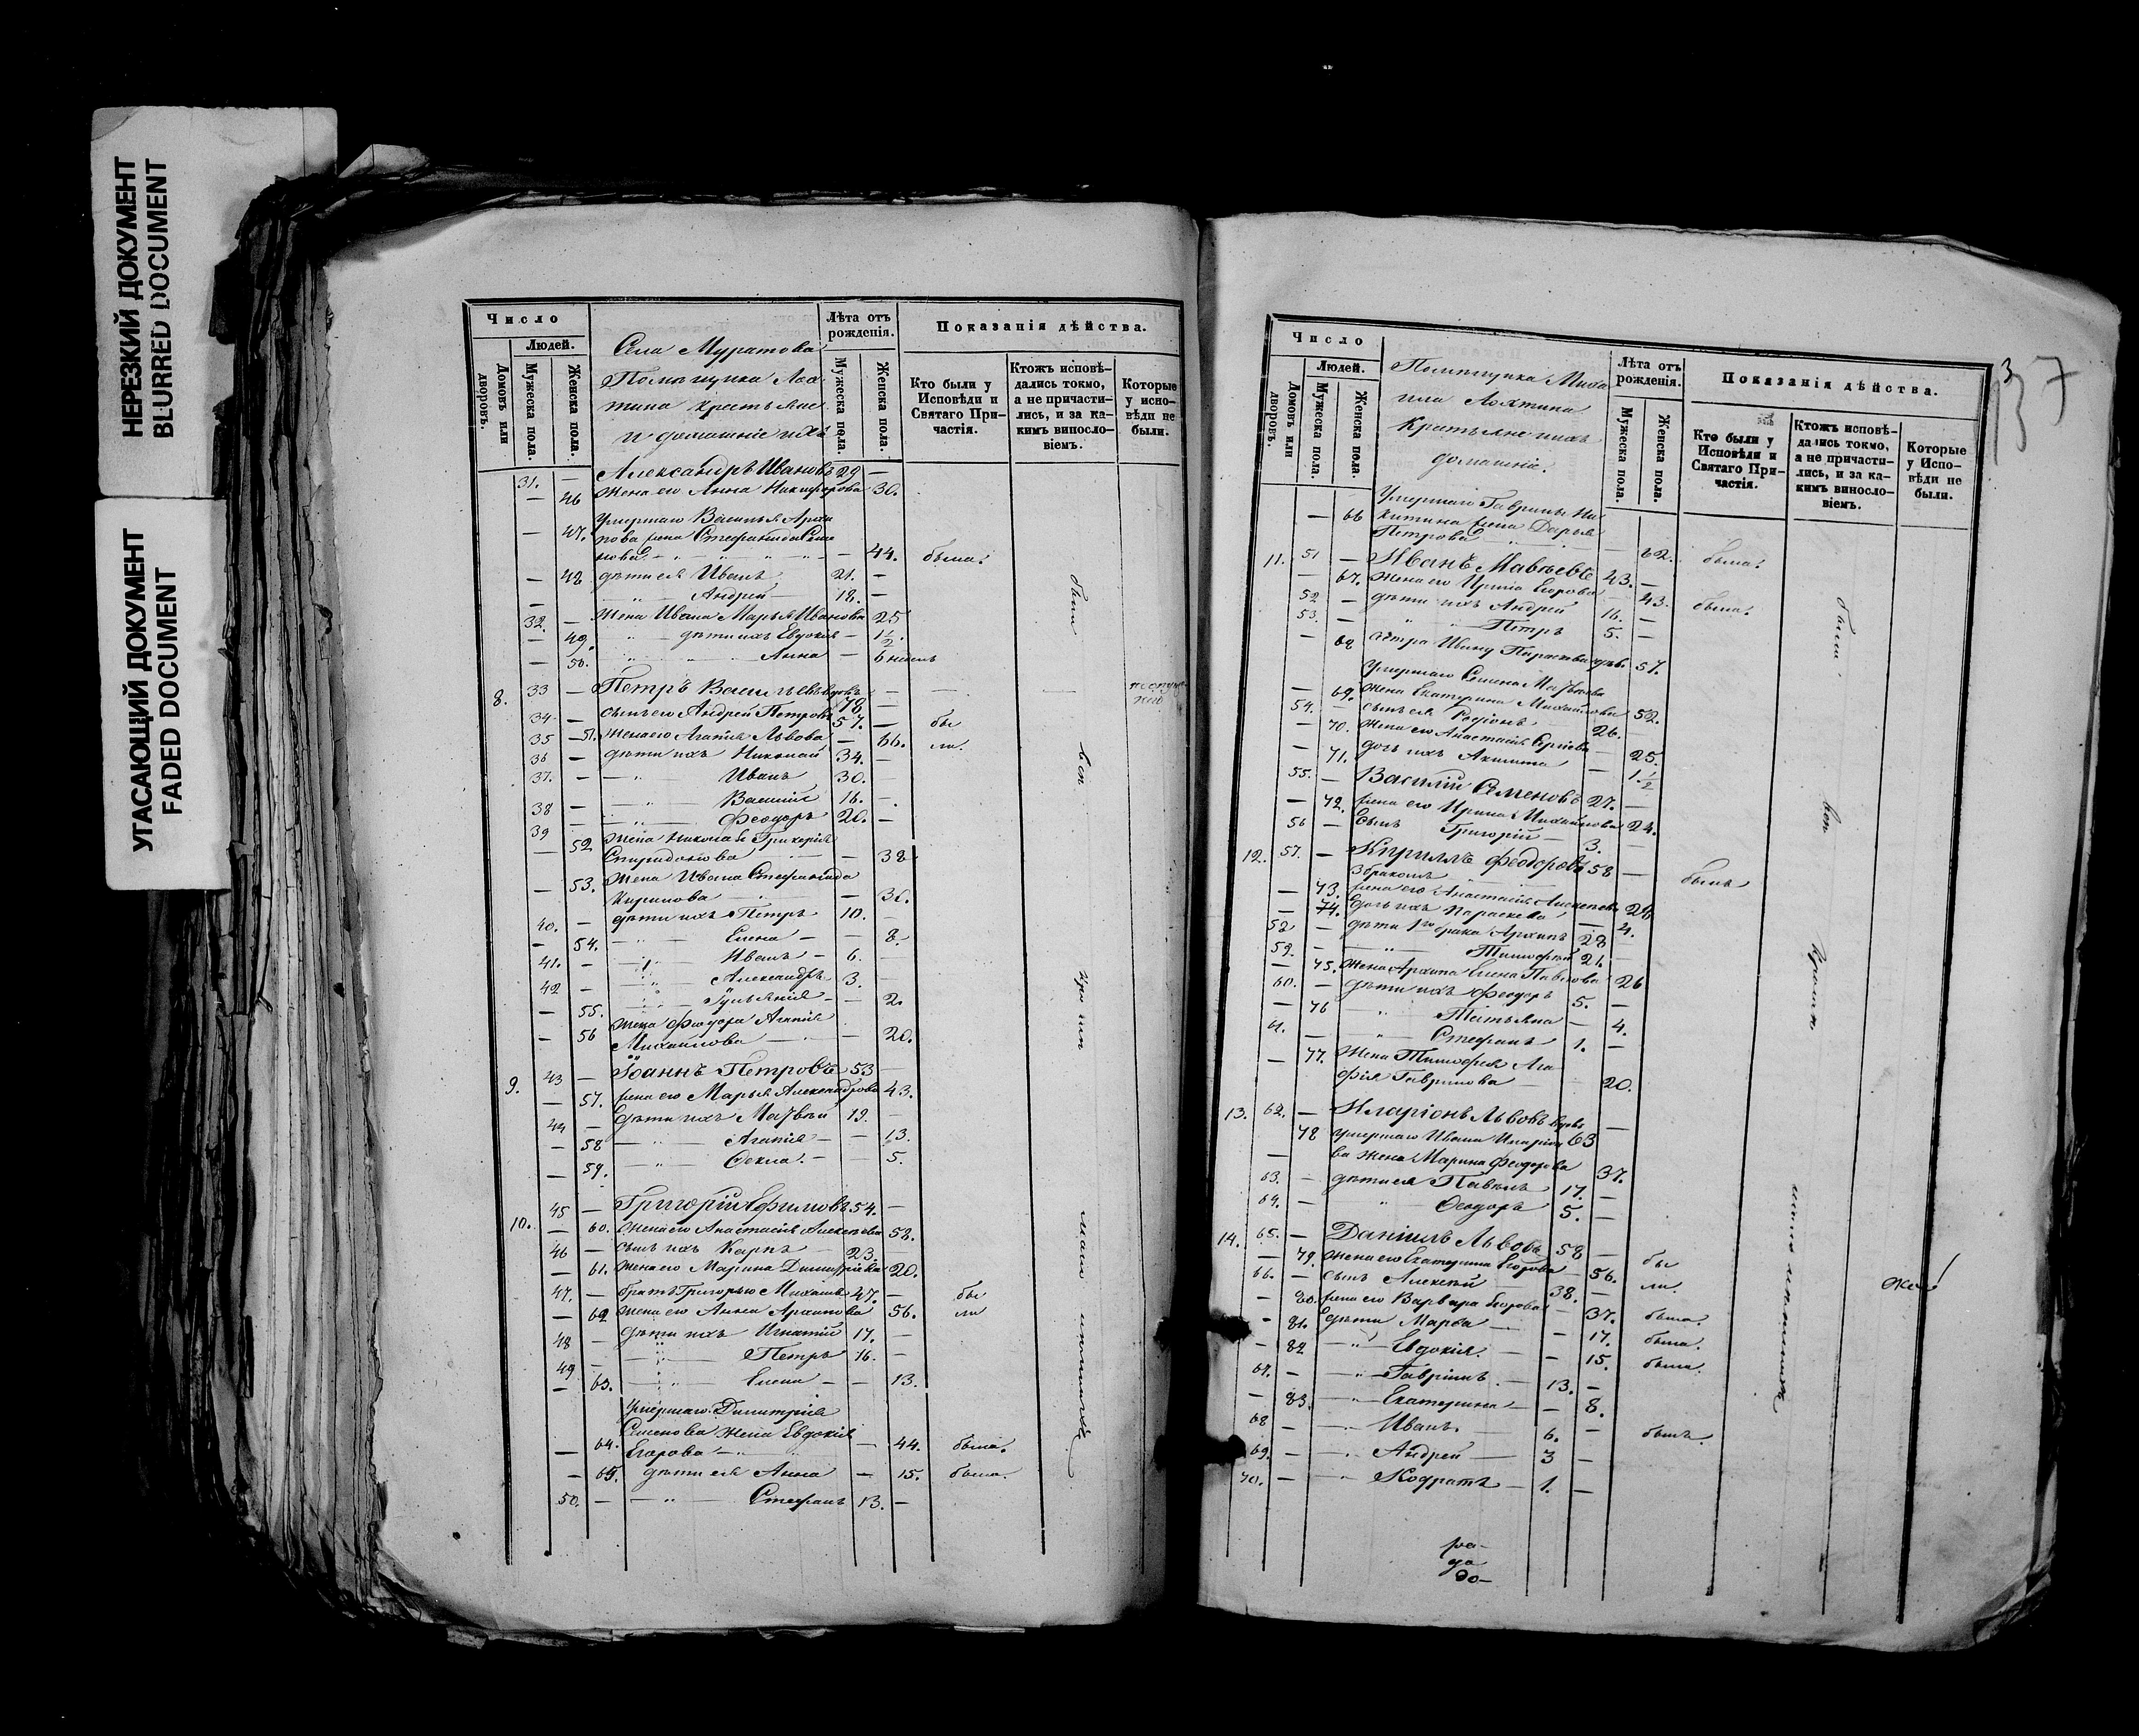 НЕРЕЗКИЙ ДОКУМЕНТ
BLURRED DOCUMENT
УГАСАЮЩИЙ ДОКУМЕНТ
FADED DOCUMENT
Число
Людей.
Домовъ или дворовъ.
Мужеска пола.
Женска пола.
Села Муратова
Помѣщика Лох
тина крестьяне
и домашніе ихъ
Лѣта отъ рожденія.
Мужеска пола.
Женска пола.
Показанія дѣйства.
Кто были у Исповѣди и Святаго При-
частія.
Ктожъ исповѣ-
дались токмо,
а не причасти-
лись, и за ка-
кимъ винosло-
віемъ.
Которые
у испо-
вѣди не
были.
31. — Александръ Ивановъ 29 —
— 46 Жена его Анна Никифорова 30.
Умершаго Василья Архи
— 47. пова жена Стефанида Семе
нова — 44. была.
— 48 дѣти ея Иванъ 21. —
— Андрей 18. —
32. — Жена Ивана Марья Иванова 25
— 49. дѣти ихъ Евдокія — 1 1/2
— 50. Анна — 6 недѣль
8. 33 — Петръ Васильевъ вдовъ 78 —
34 — сынъ его Андрей Петровъ 57. — бы
35 — 51. Жена его Агапія Львова — 66. ли.
36 — дѣти ихъ Николай 34. —
37. — Иванъ 30. —
38 — Василій 16. —
39 — Феодоръ 20. —
— 52 Жена Николая Гликерія
Спиридонова — 38
— 53. Жена Ивана Стефанида
Кирилова — 31.
40. — дѣти ихъ Петръ 10. —
— 54. Елена — 8.
41. — Иванъ — 6.
42 — Александръ 3.
— 55. Гульянія — 2.
— 56 Жена Феодора Агапія
Михайлова — 20.
9. 43 — Іоаннъ Петровъ 53
— 57. жена его Марья Александрова 43.
44 — Дѣти ихъ Матвѣй 19.
— 58 Агапія — 13.
— 59. Фекла. — 5.
10. 45 — Григорій Ефимовъ 54. —
— 60. Жена его Анастасія Алексѣева 58.
46 — сынъ ихъ Карпъ 23.
— 61. Жена его Марина Димитріева 20.
47. — братъ Григорью Михаилъ 47. — бы
— 62 Жена его Анна Архипова 56. ли
48 — дѣти ихъ Игнатій 17. —
49 — Петръ 16. —
— 63. Елена — 13.
Умершаго Димитрія
Семенова Жена Евдокія
— 64. Егорова — 44. была.
— 65. дѣти ея Анна — 15. была.
50. — Стефанъ 13. —
37
Число
Людей.
Домовъ или дворовъ.
Мужеска пола.
Женска пола.
Помѣщика Миха
ила Лохтина
Кратьяне ихъ
домашніе.
Лѣта отъ рожденія.
Мужеска пола.
Женска пола.
Показанія дѣйства.
Кто были у
Исповѣди и
Святаго При-
частія.
Ктожъ исповѣ-
дались токмо,
а не причасти-
лись, и за ка-
кимъ винosло-
віемъ.
Которые
у Испо-
вѣди не
были.
Умершаго Гаврилы Ни
— 66 китина жена Дарья
Петрова — 62. была.
11. 51 — Иванъ Мавѣевъ 43. —
— 67. Жена его Ирина Егорова 43. была.
52 — дѣти ихъ Андрей 16. —
53. — Петръ 5. —
— 68 сестра Ивану Параскева 57.
Умершаго Семена Матвѣева
— 69. Жена Екатерина Михайлова 52.
54. — сынъ ея Родіонъ 26.
— 70. Жена его Анастасія Сергіева — 25.
— 71. дочь ихъ Акилина — 1. 1/2
55. — Василій Семеновъ 27. —
— 72. жена его Ирина Михайлова 24.
56 — Сынъ Григорій — 3.
12. 57. — Кириллъ Феодоровъ 58 — былъ
3 бракомъ
— 73. жена его Анастасія Алексѣева 28
— 74. дочь ихъ Параскева — 4.
58 — дѣти 1го брака Архипъ 28
59. — Тимофей 21.
— 75. Жена Архипа Елена Павлова 26
60. — дѣти ихъ Феодоръ 5. —
— 76 Татьяна — 4.
61. — Стефанъ 1. —
— 77. Жена Тимофея Ага
фія Гаврилова — 20.
13. 62. — Иларіонъ Львовъ вдовъ 63 —
78 умершаго Ивана Иларіо
— ва Жена Марина Феодорова 37.
63. — дѣти ея Павелъ 17. —
64. — Феодоръ 5. —
14. 65. — Даніилъ Львовъ 58 —
— 79. Жена его Екатерина Егорова 56. бы
66. — сынъ Алексѣй 38. — ли.
— 80. жена его Варвара Егорова 37. была.
— 81. дѣти Марѳа — 17. была.
— 82 Евдокія. — 15. была.
67. — Гавріилъ 13. —
— 83. Екатерина — 8.
68 — Иванъ. 6. — былъ.
69. — Андрей — 3 —
70. — Кодратъ — 1. —